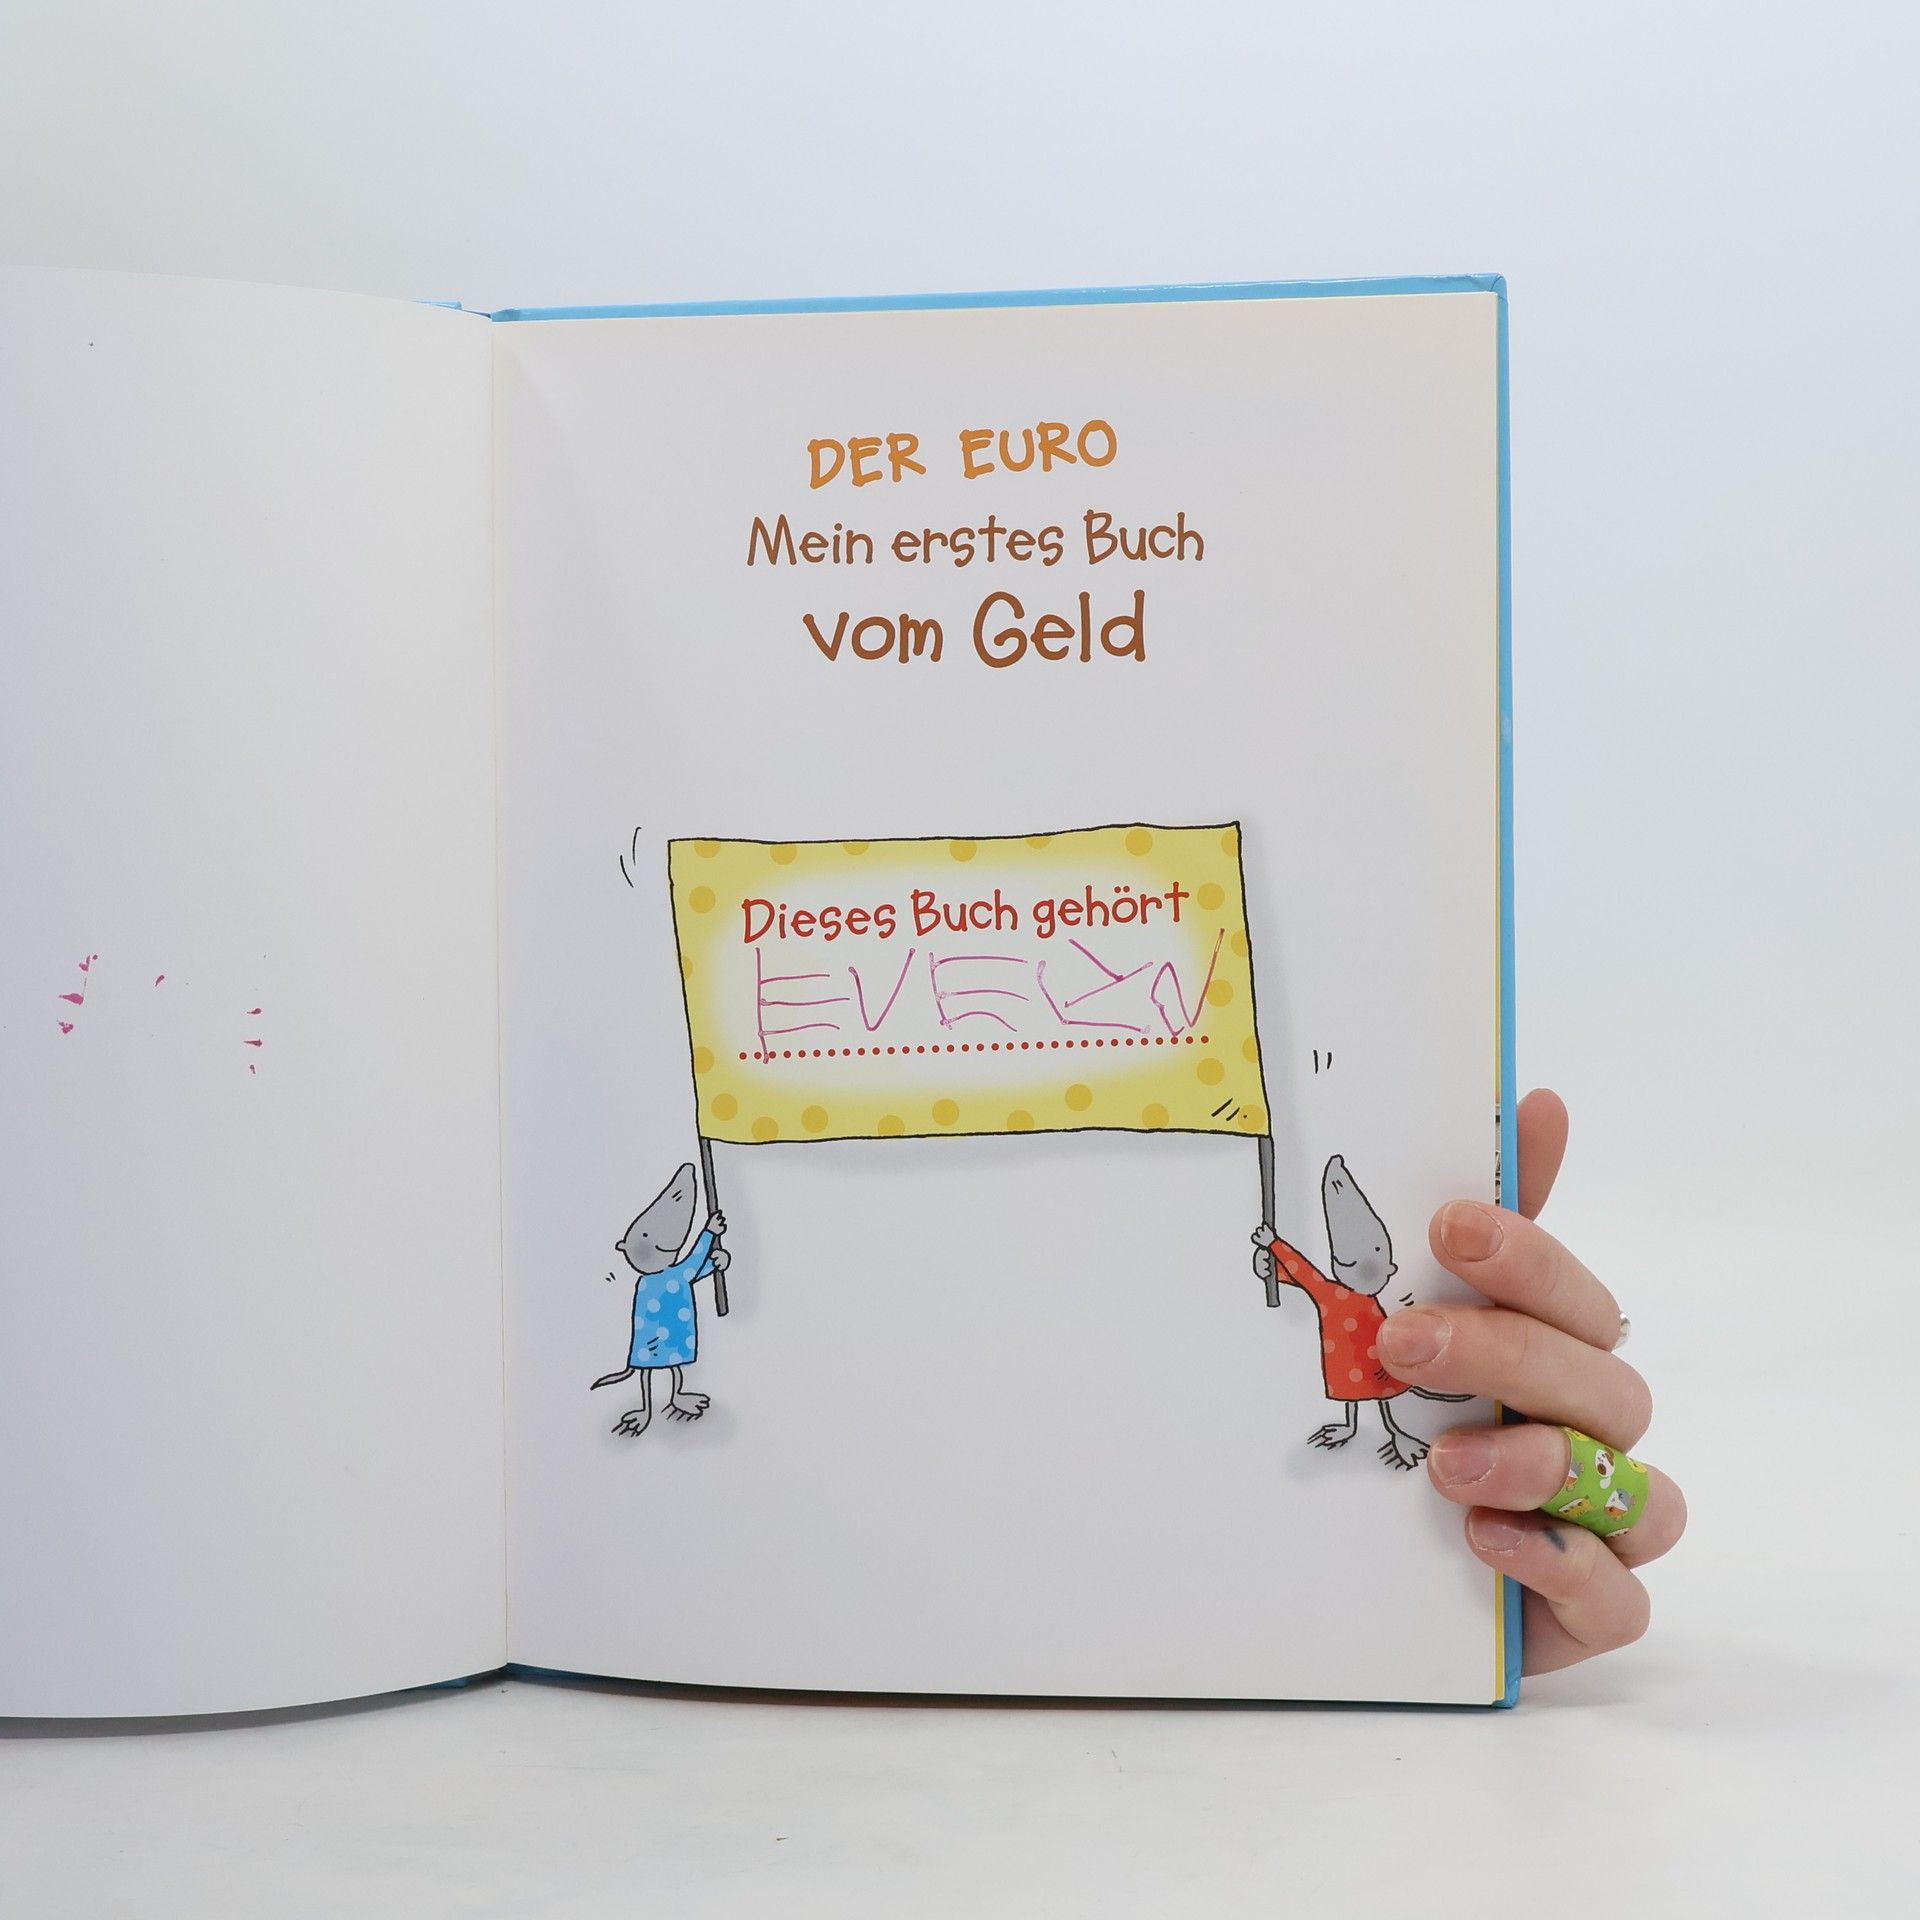 DER EURO
Mein erstes Buch
vom Geld
Dieses Buch gehört
EVELYN